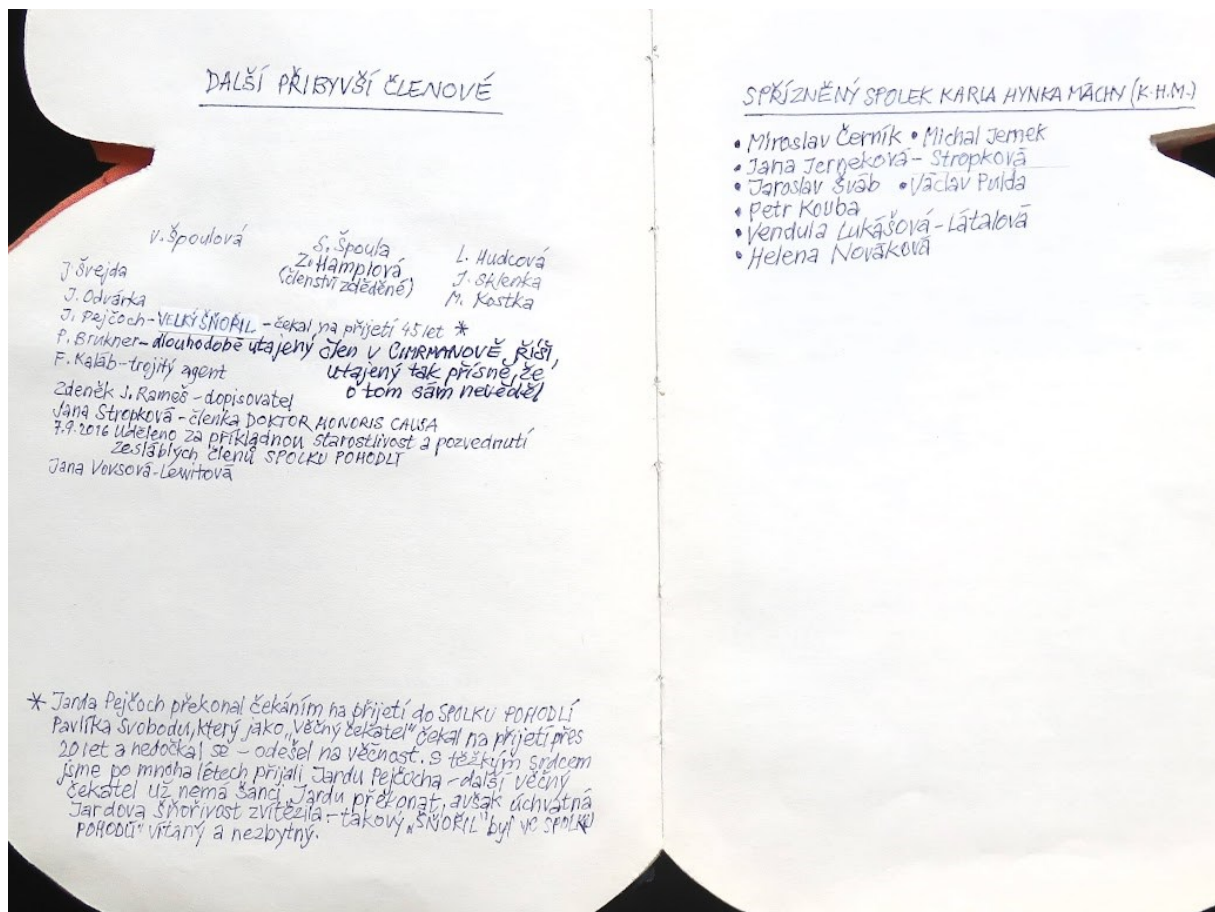 DALŠÍ PŘIBYVŠÍ ČLENOVÉ
V. Špoulová
S. Špoula
Z. Hamplová
(členství zděděné)
L. Hudcová
J. Sklenka
M. Kostka
J. Švejda
J. Odvárka
J. Pejčoch - VELKÝ ŠŇOŘIL - čekal na přijetí 45 let *
P. Brukner - dlouhodobě utajený člen v CIMRMANOVĚ ŘÍŠI,
utajený tak přísně, že
o tom sám nevěděl
F. Kaláb - trojitý agent
Zdeněk J. Rameš - dopisovatel
Jana Stropková - členka DOKTOR HONORIS CAUSA
7.9.2016 Uděleno za příkladnou starostlivost a pozvednutí
zesláblých členů SPOLKU POHODLÍ
Jana Vovsová-Lewitová
* Jarda Pejčoch překonal čekáním na přijetí do SPOLKU POHODLÍ
Pavlíka Svobodu, který jako „Věčný čekatel" čekal na přijetí přes
20 let a nedočkal se - odešel na věčnost. S těžkým srdcem
jsme po mnoha létech přijali Jardu Pejčocha - další věčný
čekatel už nemá šanci Jardu překonat, avšak úchvatná
Jardova šňořivost zvítězila - takový „ŠŇOŘIL" byl ve SPOLKU
POHODLÍ" vítaný a nezbytný.
SPŘÍZNĚNÝ SPOLEK KARLA HYNKA MÁCHY (K.H.M.)
• Miroslav Černík • Michal Jernek
• Jana Jerneková - Stropková
• Jaroslav Šváb • Václav Pulda
• Petr Kouba
• Vendula Lukášová - Látalová
• Helena Nováková